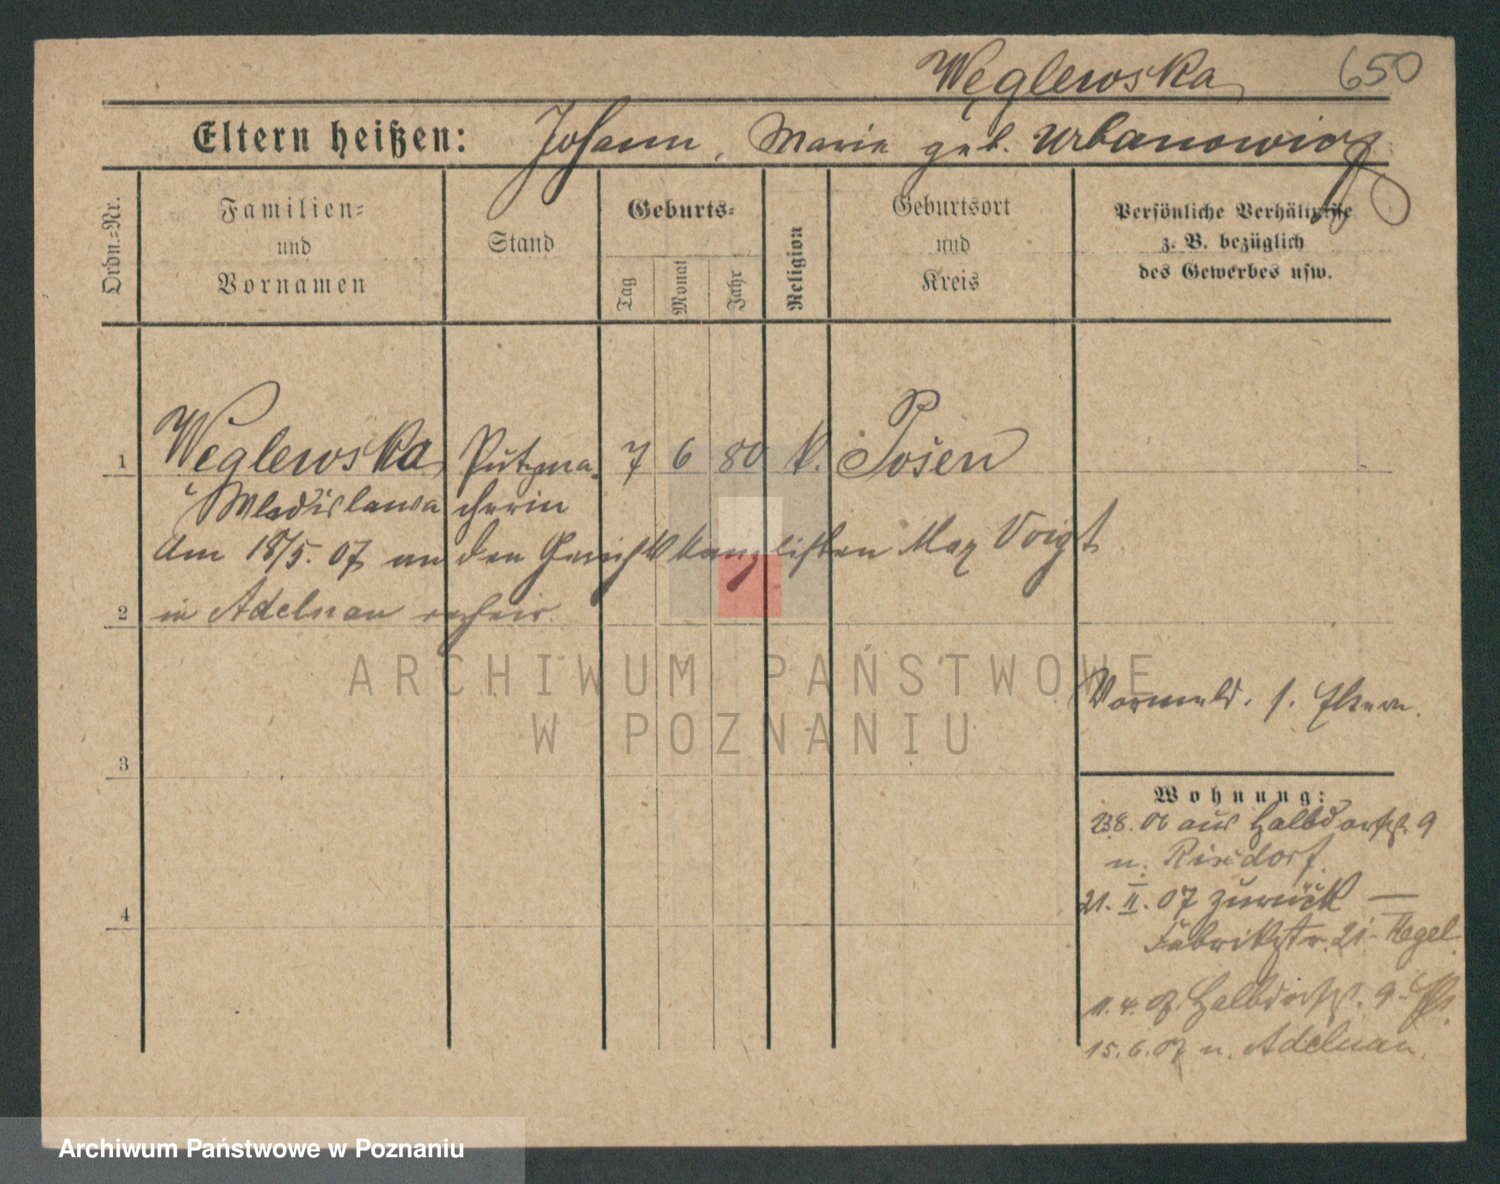 Węglewska 650
Eltern heißen: Johann, Maria geb. Urbanowicz
Ordn.-Nr.
Familien-
und
Vornamen
Stand
Geburts-
Tag
Monat
Jahr
Religion
Geburtsort
und
Kreis
Persönliche Verhältnisse
z. B. bezüglich
des Gewerbes usw.
1 Węglewska Putzma- 7 6 80 k. Posen
Wladislawa cherin
Am 18/5. 07 an den Gerichtskanzlisten Max Voigt
2 in Adelnau verheir.
ARCHIWUM PAŃSTWOWE
W POZNANIU
Vormeld. s. Eltern.
3
Wohnung:
23.8. 06 aus Halbdorfstr. 9
n. Rixdorf
21. II. 07 zurück —
Fabrikstr. 21 - Nagel
4
1. 4. 07. Halbdorfstr. 9
15. 6. 07 n. Adelnau.
Archiwum Państwowe w Poznaniu